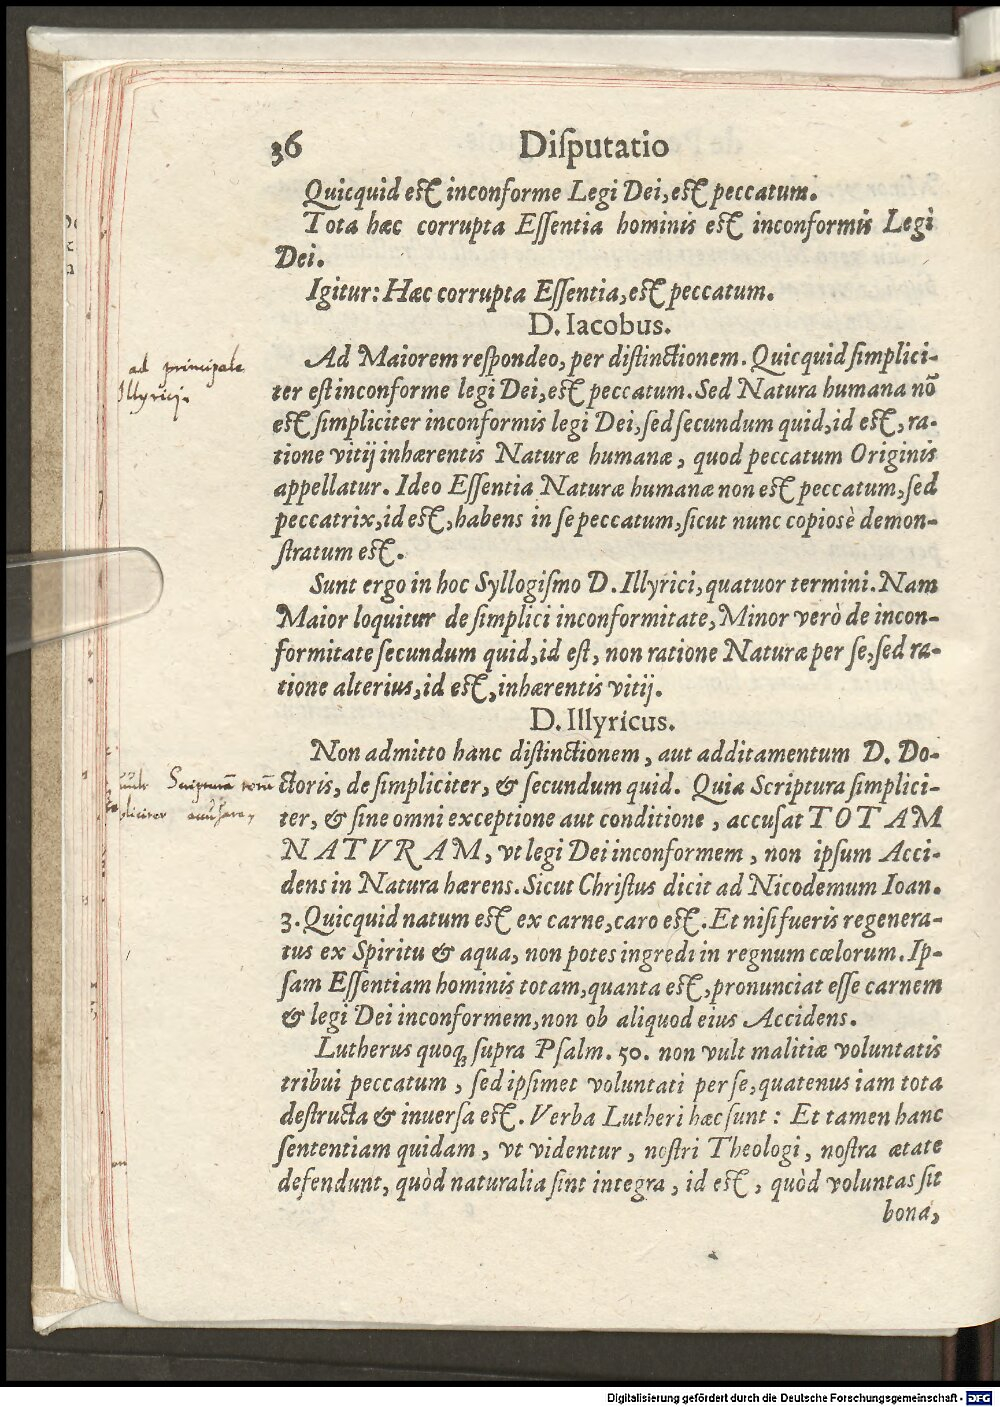 36 Diſputatio
Quicquid eſt inconforme Legi Dei, eſt peccatum.
Tota hæc corrupta Eſſentia hominis eſt inconformis Legi
Dei.
Igitur: Hæc corrupta Eſſentia, eſt peccatum.
D. Iacobus.
Ad Maiorem reſpondeo, per diſtinctionem. Quicquid ſimplici-
ter eſt inconforme legi Dei, eſt peccatum. Sed Natura humana nõ
eſt ſimpliciter inconformis legi Dei, ſed ſecundum quid, id eſt, ra-
tione vitij inhærentis Naturæ humanæ, quod peccatum Originis
appellatur. Ideo Eſſentia Naturæ humanæ non eſt peccatum, ſed
peccatrix, id eſt, habens in ſe peccatum, ſicut nunc copioſè demon-
ſtratum eſt.
Sunt ergo in hoc Syllogiſmo D. Illyrici, quatuor termini. Nam
Maior loquitur de ſimplici inconformitate, Minor verò de incon-
formitate ſecundum quid, id eſt, non ratione Naturæ per ſe, ſed ra-
tione alterius, id eſt, inhærentis vitij.
D. Illyricus.
Non admitto hanc diſtinctionem, aut additamentum D. Do-
ctoris, de ſimpliciter, & ſecundum quid. Quia Scriptura ſimplici-
ter, & ſine omni exceptione aut conditione, accuſat TOTAM
NATVRAM, vt legi Dei inconformem, non ipſum Acci-
dens in Natura hærens. Sicut Chriſtus dicit ad Nicodemum Ioan.
3. Quicquid natum eſt ex carne, caro eſt. Et niſi fueris regenera-
tus ex Spiritu & aqua, non potes ingredi in regnum cœlorum. Ip-
ſam Eſſentiam hominis totam, quanta eſt, pronunciat eſſe carnem
& legi Dei inconformem, non ob aliquod eius Accidens.
Lutherus quoq; ſupra Pſalm. 50. non vult malitiæ voluntatis
tribui peccatum, ſed ipſimet voluntati per ſe, quatenus iam tota
deſtructa & inuerſa eſt. Verba Lutheri hæc ſunt: Et tamen hanc
ſententiam quidam, vt videntur, noſtri Theologi, noſtra ætate
defendunt, quòd naturalia ſint integra, id eſt, quòd voluntas ſit
bona,
ad principale
Illyrici.
Digitalisierung gefördert durch die Deutsche Forschungsgemeinschaft - DFG